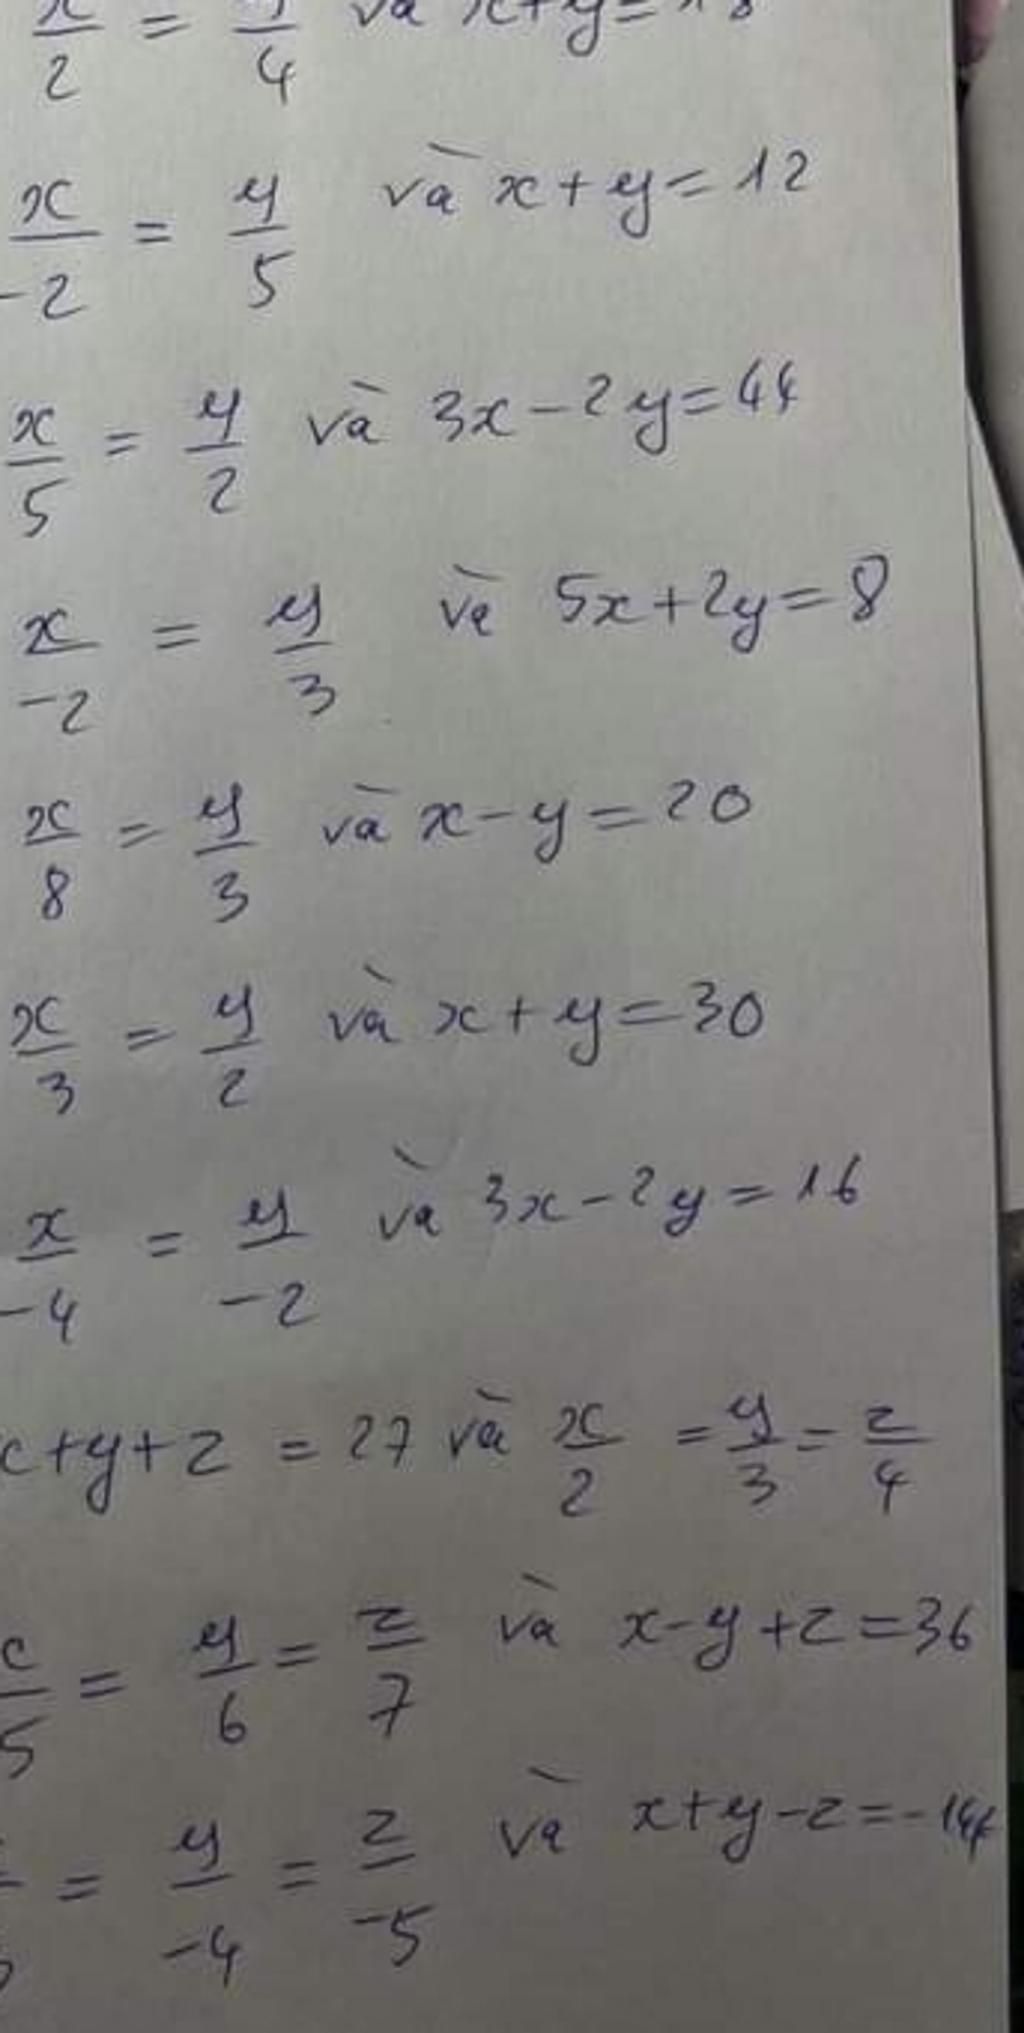 x/2 = y/4 và x+y=18
x/-2 = y/5 và x+y=12
x/5 = y/2 và 3x-2y=44
x/-2 = y/3 và 5x+2y=8
x/8 = y/3 và x-y=20
x/3 = y/2 và x+y=30
x/-4 = y/-2 và 3x-2y=16
x+y+z = 27 và x/2 = y/3 = z/4
x/5 = y/6 = z/7 và x-y+z=36
= y/-4 = z/-5 và x+y-z=